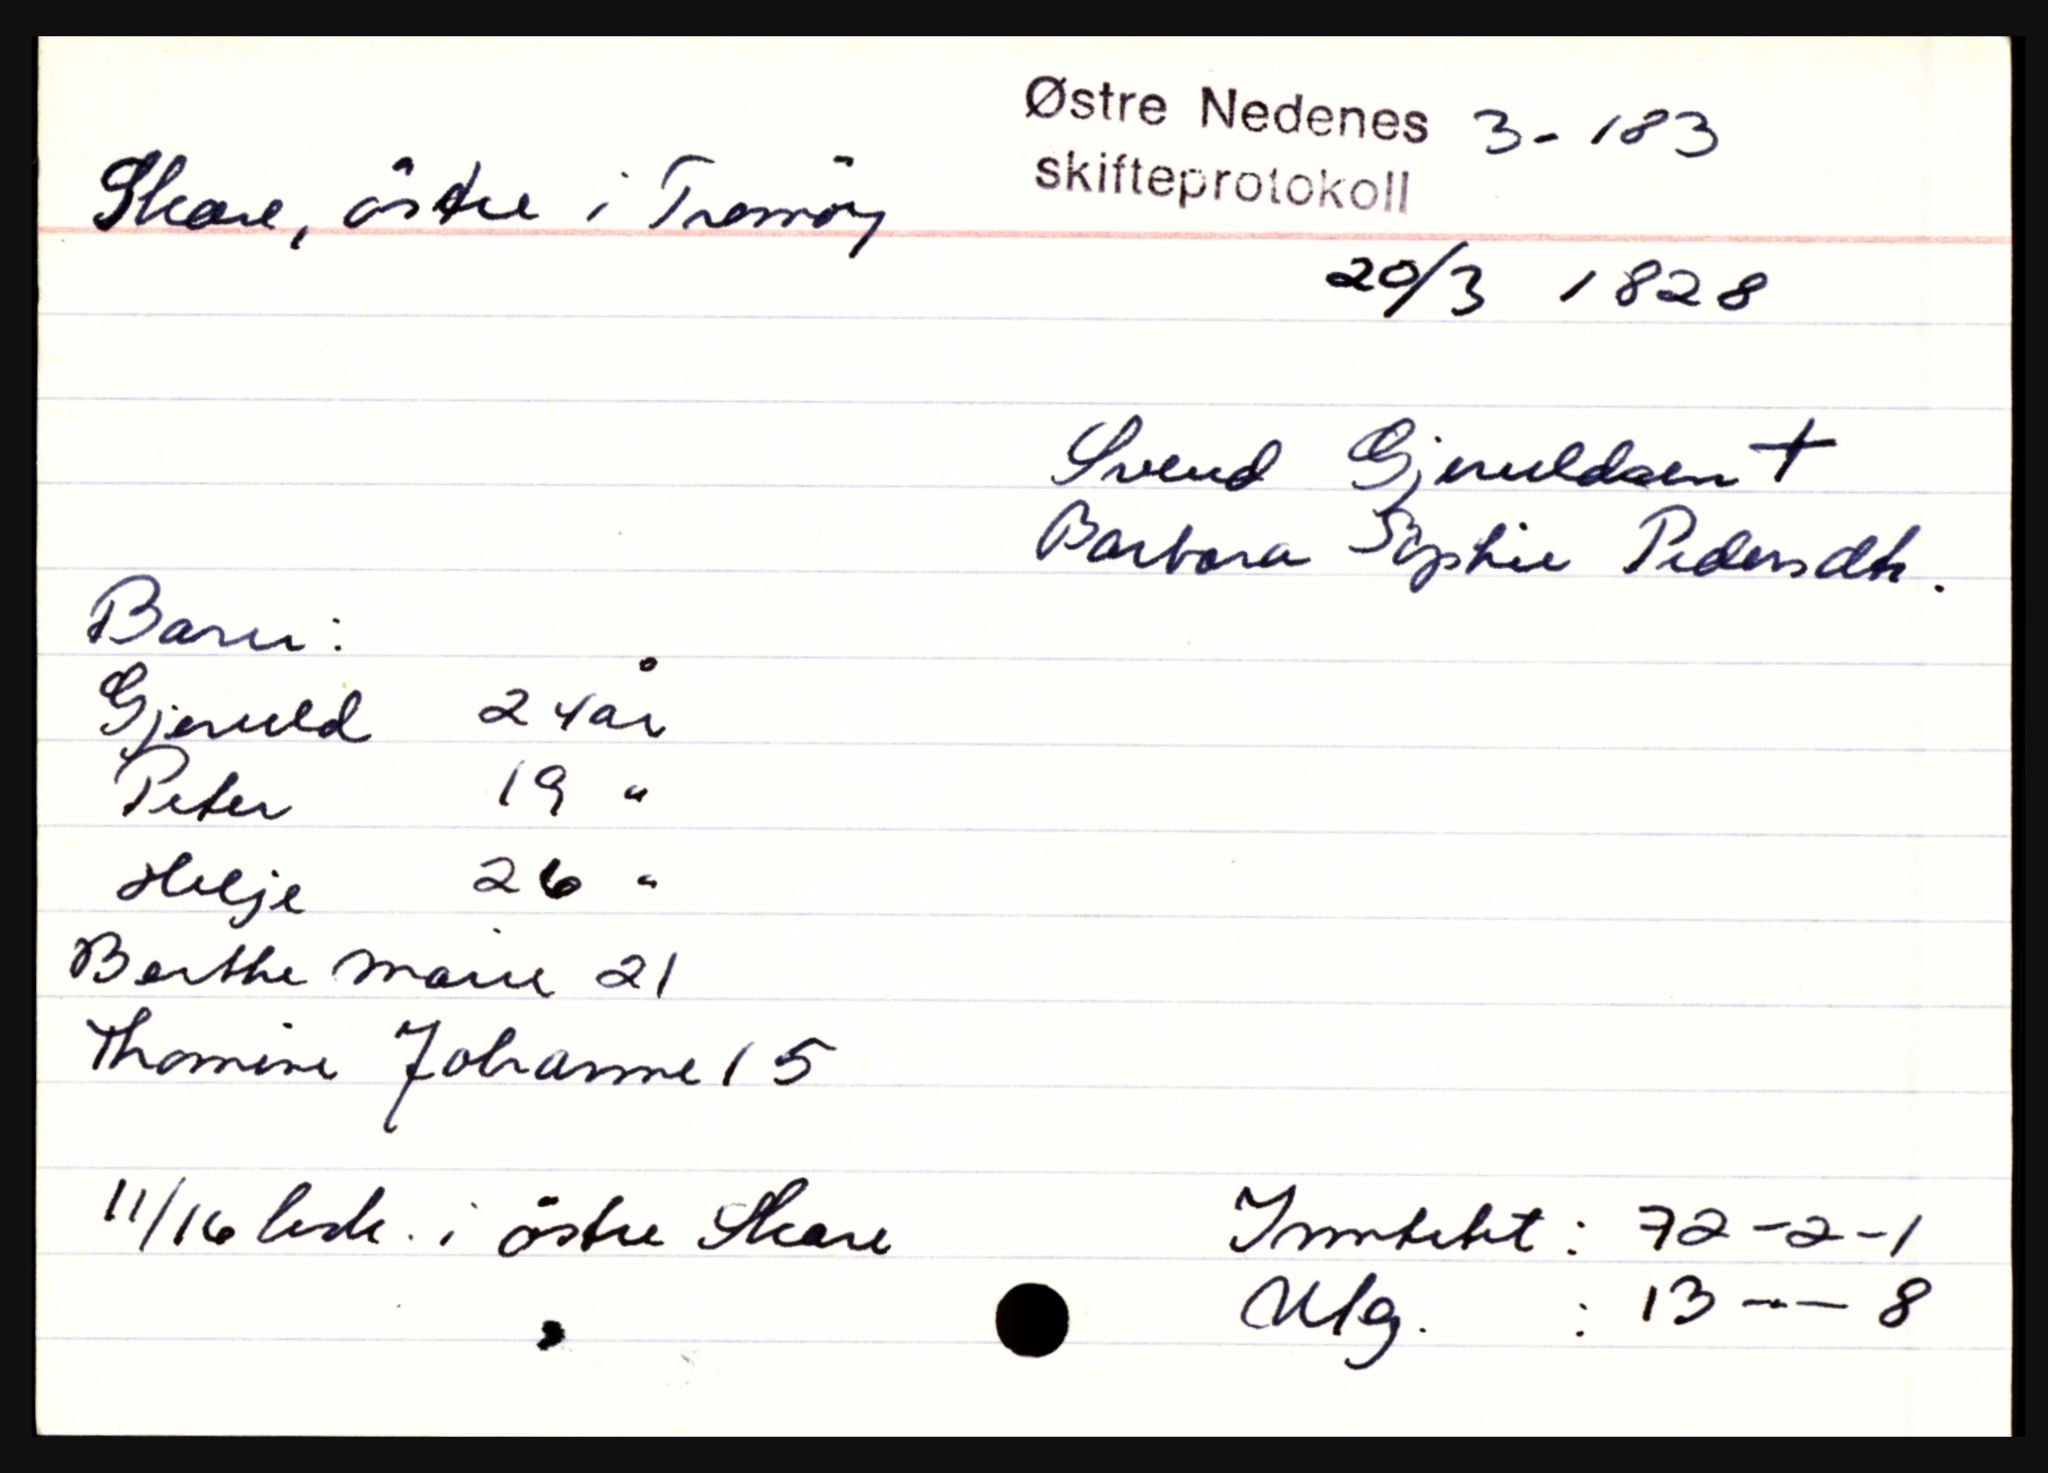 Østre Nedenes 3-183
skifteprotokoll
Skare, östre i Tromöy
20/3 1828
Svend Gjeruldsen +
Barbara Sophie Pedersdtr.
Barn:
Gjeruld 24 år
Peter 19 "
Helje 26 "
Berthe Marie 21
Thomine Johanne 15
11/16 besk. i östre Skare
Inntekt: 72-2-1
Utg. : 13 -- 8